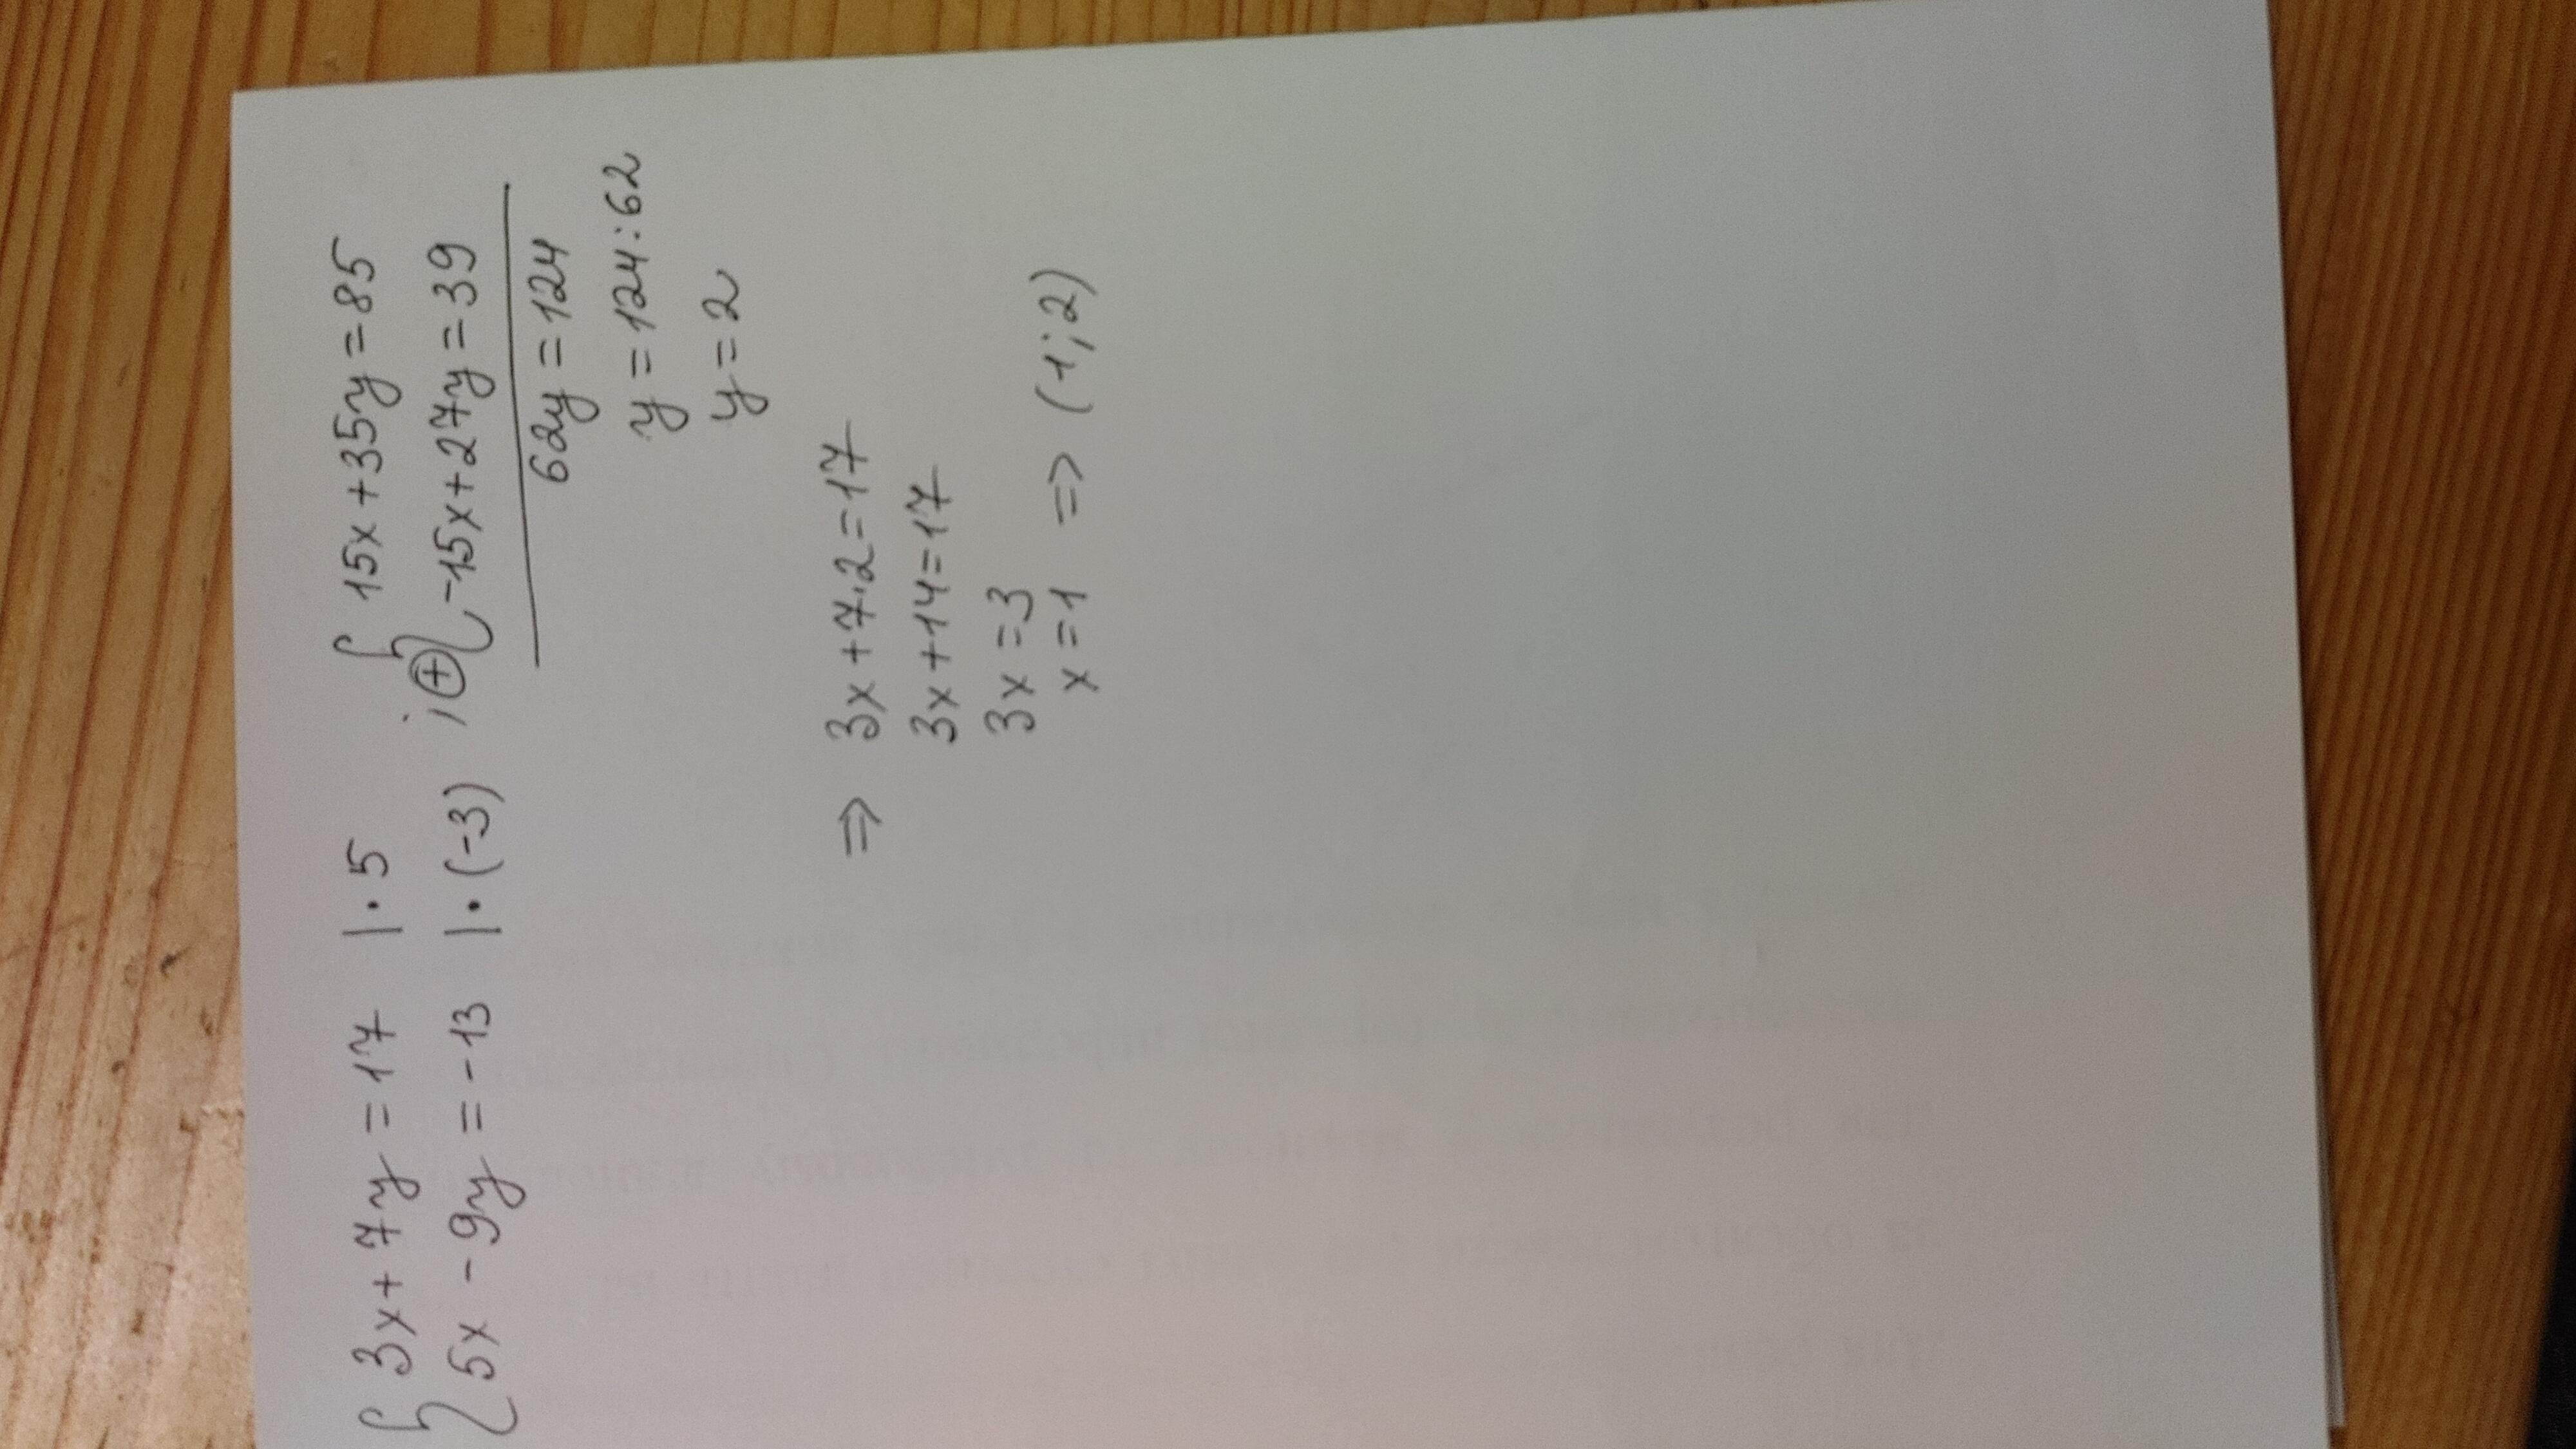 { 3x + 7y = 17 | · 5 ; { 15x + 35y = 85
5x - 9y = -13 | · (-3) ⊕ -15x + 27y = 39
62y = 124
y = 124 : 62
y = 2
=> 3x + 7·2 = 17
3x + 14 = 17
3x = 3
x = 1 => (1; 2)